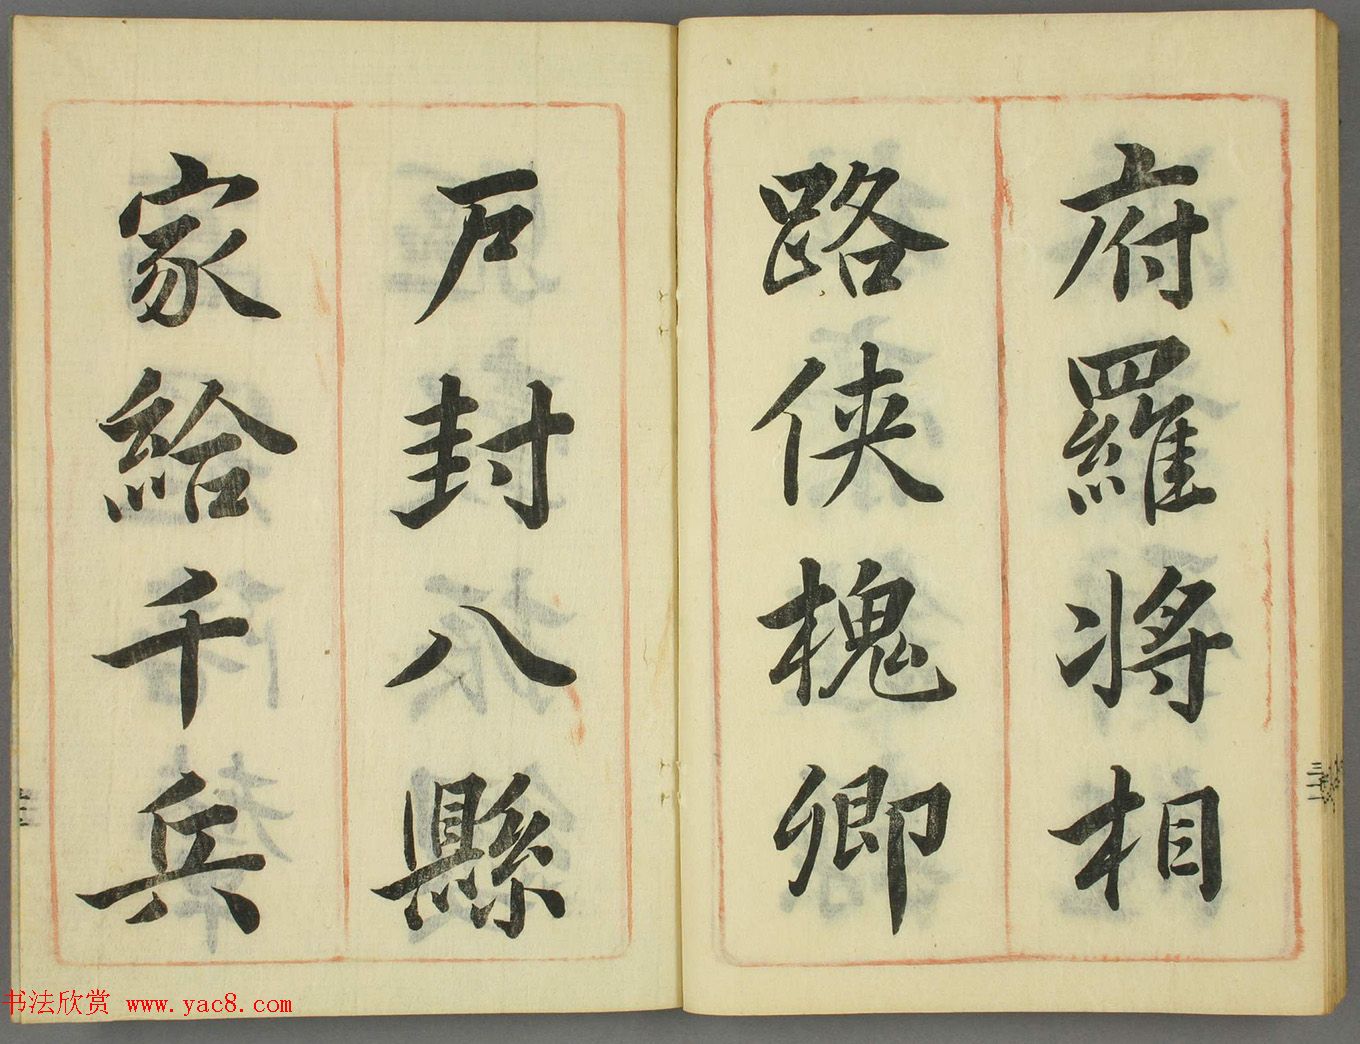 府羅將相
路俠槐卿
戶封八縣
家給千兵
书法欣赏 www.yac8.com